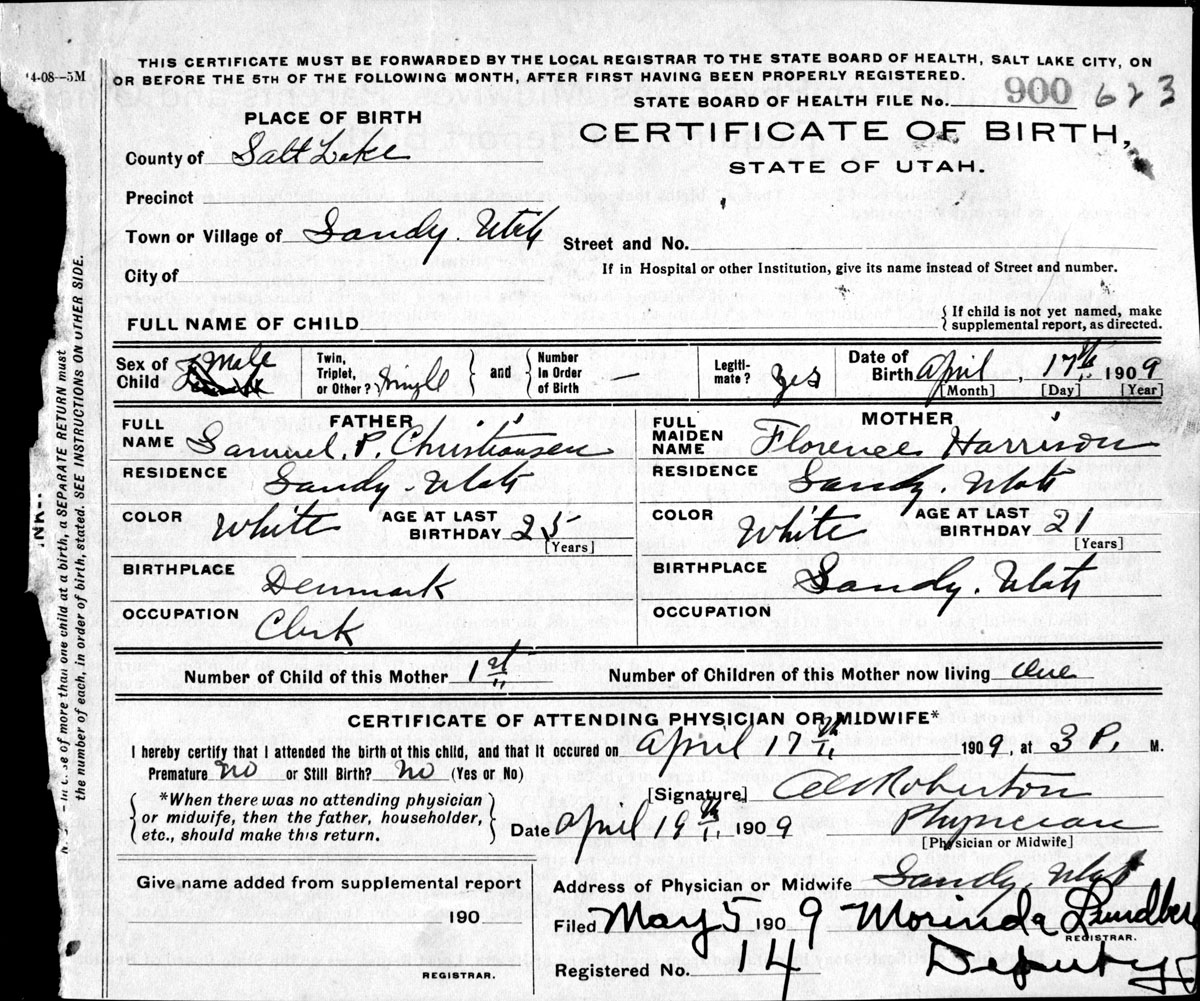 4-08--5M
THIS CERTIFICATE MUST BE FORWARDED BY THE LOCAL REGISTRAR TO THE STATE BOARD OF HEALTH, SALT LAKE CITY, ON
OR BEFORE THE 5TH OF THE FOLLOWING MONTH, AFTER FIRST HAVING BEEN PROPERLY REGISTERED.
STATE BOARD OF HEALTH FILE No. 900 623
PLACE OF BIRTH
CERTIFICATE OF BIRTH,
STATE OF UTAH.
County of Salt Lake
Precinct
Town or Village of Sandy. Utah
Street and No.
City of
If in Hospital or other Institution, give its name instead of Street and number.
FULL NAME OF CHILD
{If child is not yet named, make
supplemental report, as directed.
Sex of Child Male
Twin, Triplet, or Other? Single } and { Number In Order of Birth —
Legiti-mate? yes
Date of Birth April, 17th 1909
[Month] [Day] [Year]
FATHER
FULL NAME Samuel. P. Christiansen
RESIDENCE Sandy. Utah
COLOR White AGE AT LAST BIRTHDAY 25
[Years]
BIRTHPLACE Denmark
OCCUPATION Clerk
MOTHER
FULL MAIDEN NAME Florence Harrison
RESIDENCE Sandy. Utah
COLOR White AGE AT LAST BIRTHDAY 21
[Years]
BIRTHPLACE Sandy. Utah
OCCUPATION
Number of Child of this Mother 1st
Number of Children of this Mother now living One
CERTIFICATE OF ATTENDING PHYSICIAN OR MIDWIFE*
I hereby certify that I attended the birth of this child, and that it occured on April 17th 1909, at 3 P. M.
Premature no or Still Birth? no (Yes or No)
{*When there was no attending physician
or midwife, then the father, householder,
etc., should make this return.}
[Signature] Robertson
Date April 19th 1909 Physician
[Physician or Midwife]
Give name added from supplemental report
190
REGISTRAR.
Address of Physician or Midwife Sandy, Utah
Filed May 5 1909 Morinda Lundberg
REGISTRAR.
Registered No. 14 Deputy
of more than one child at a birth, a SEPARATE RETURN must
the number of each, in order of birth, stated. SEE INSTRUCTIONS ON OTHER SIDE.
INK--